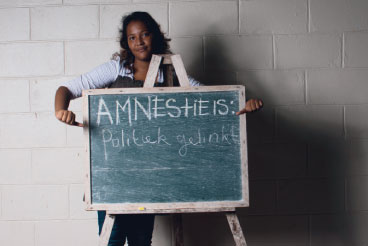 AMNESTIE IS:
Politiek gelinkt